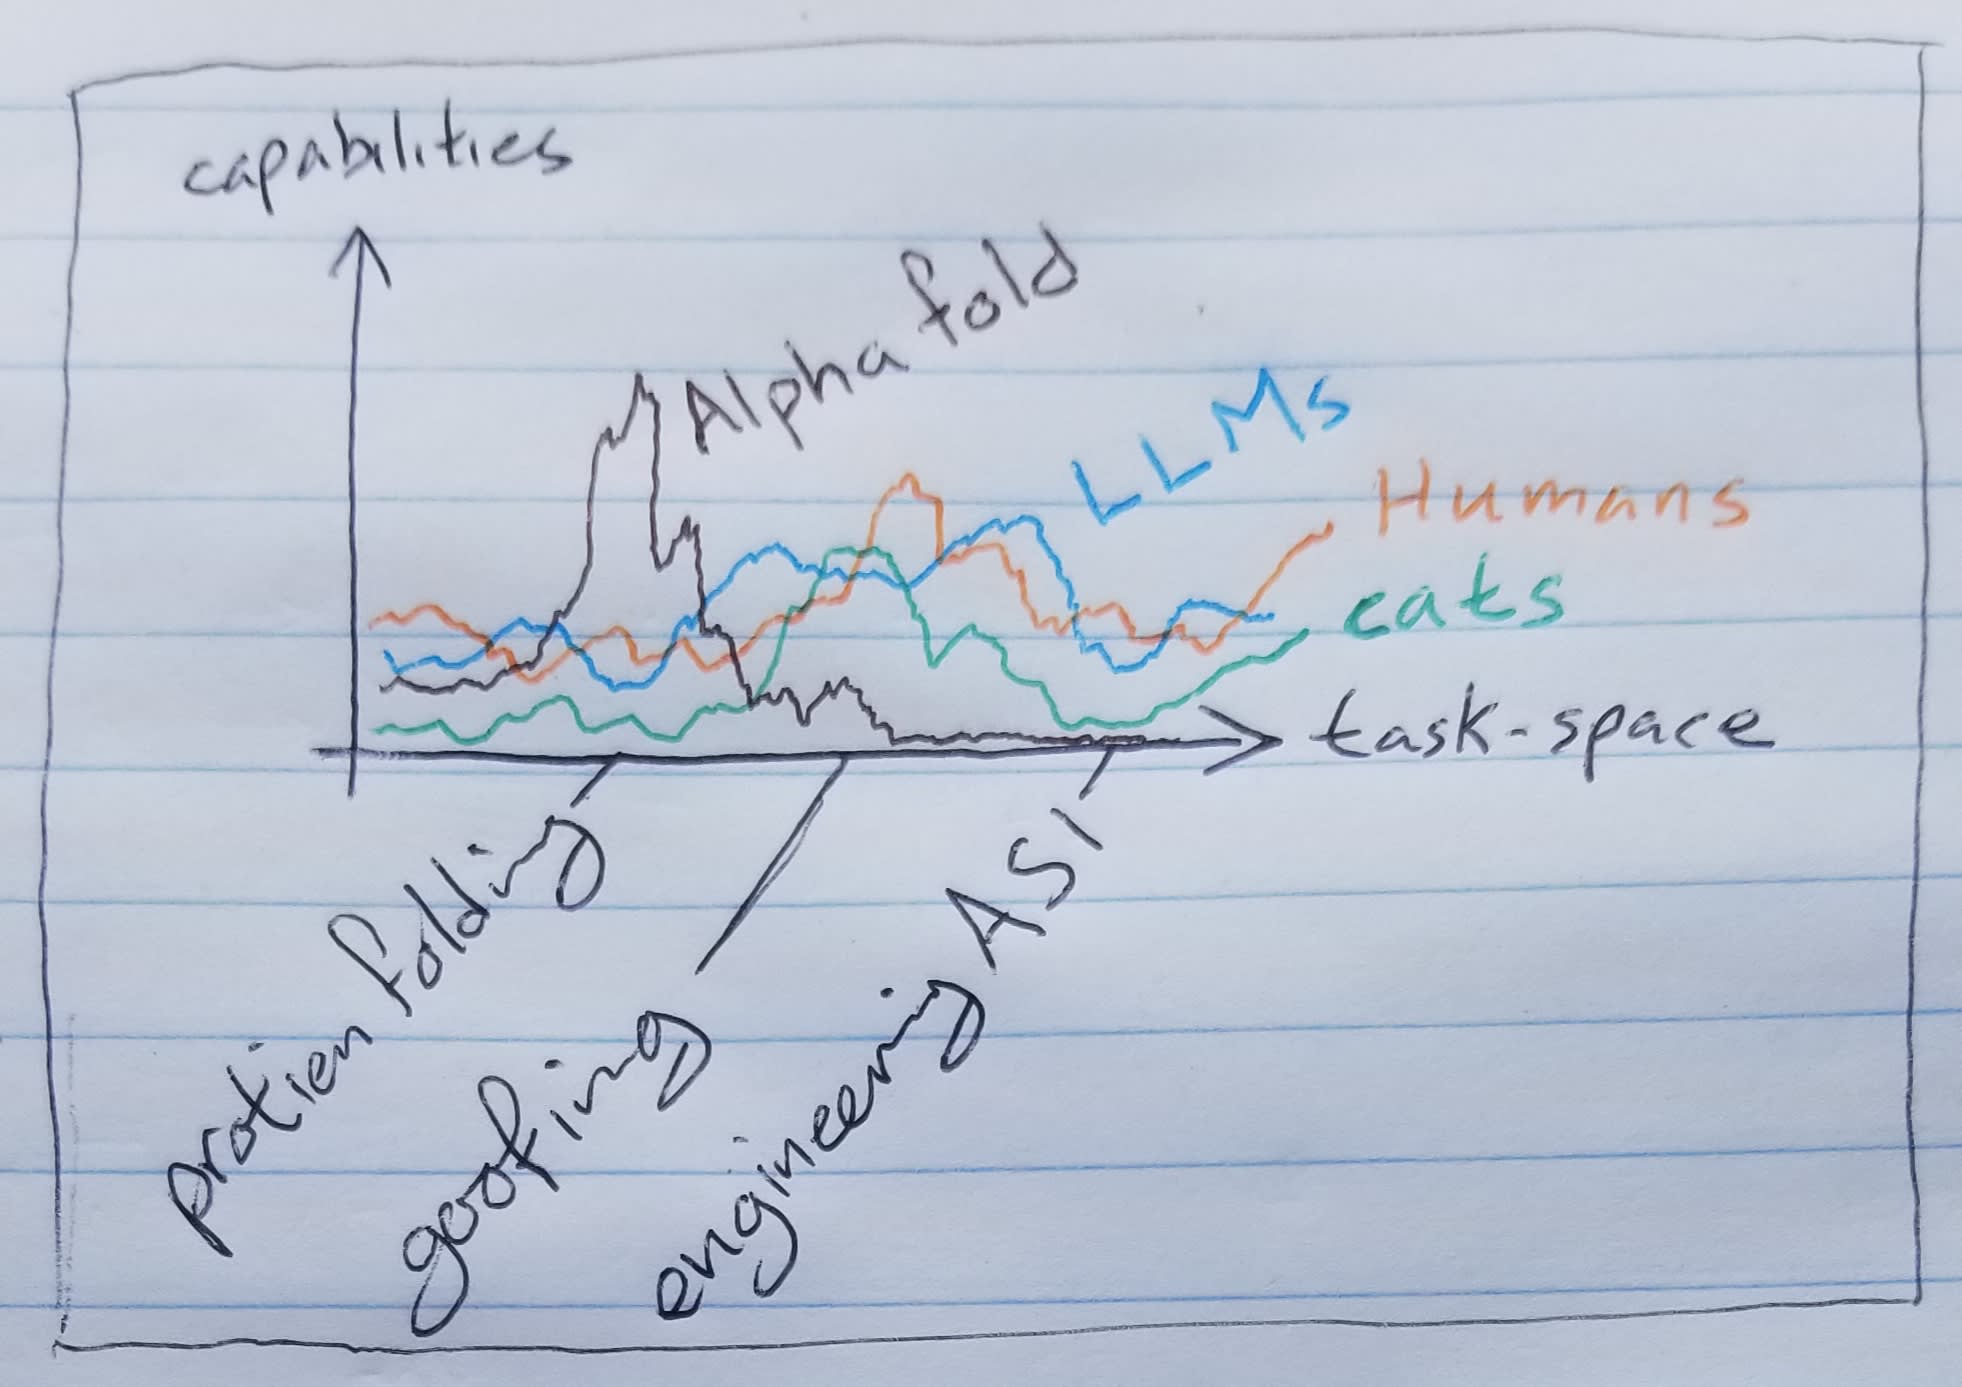 capabilities
Alpha fold
LLMs
Humans
cats
task-space
protien folding
goofing
engineering ASI